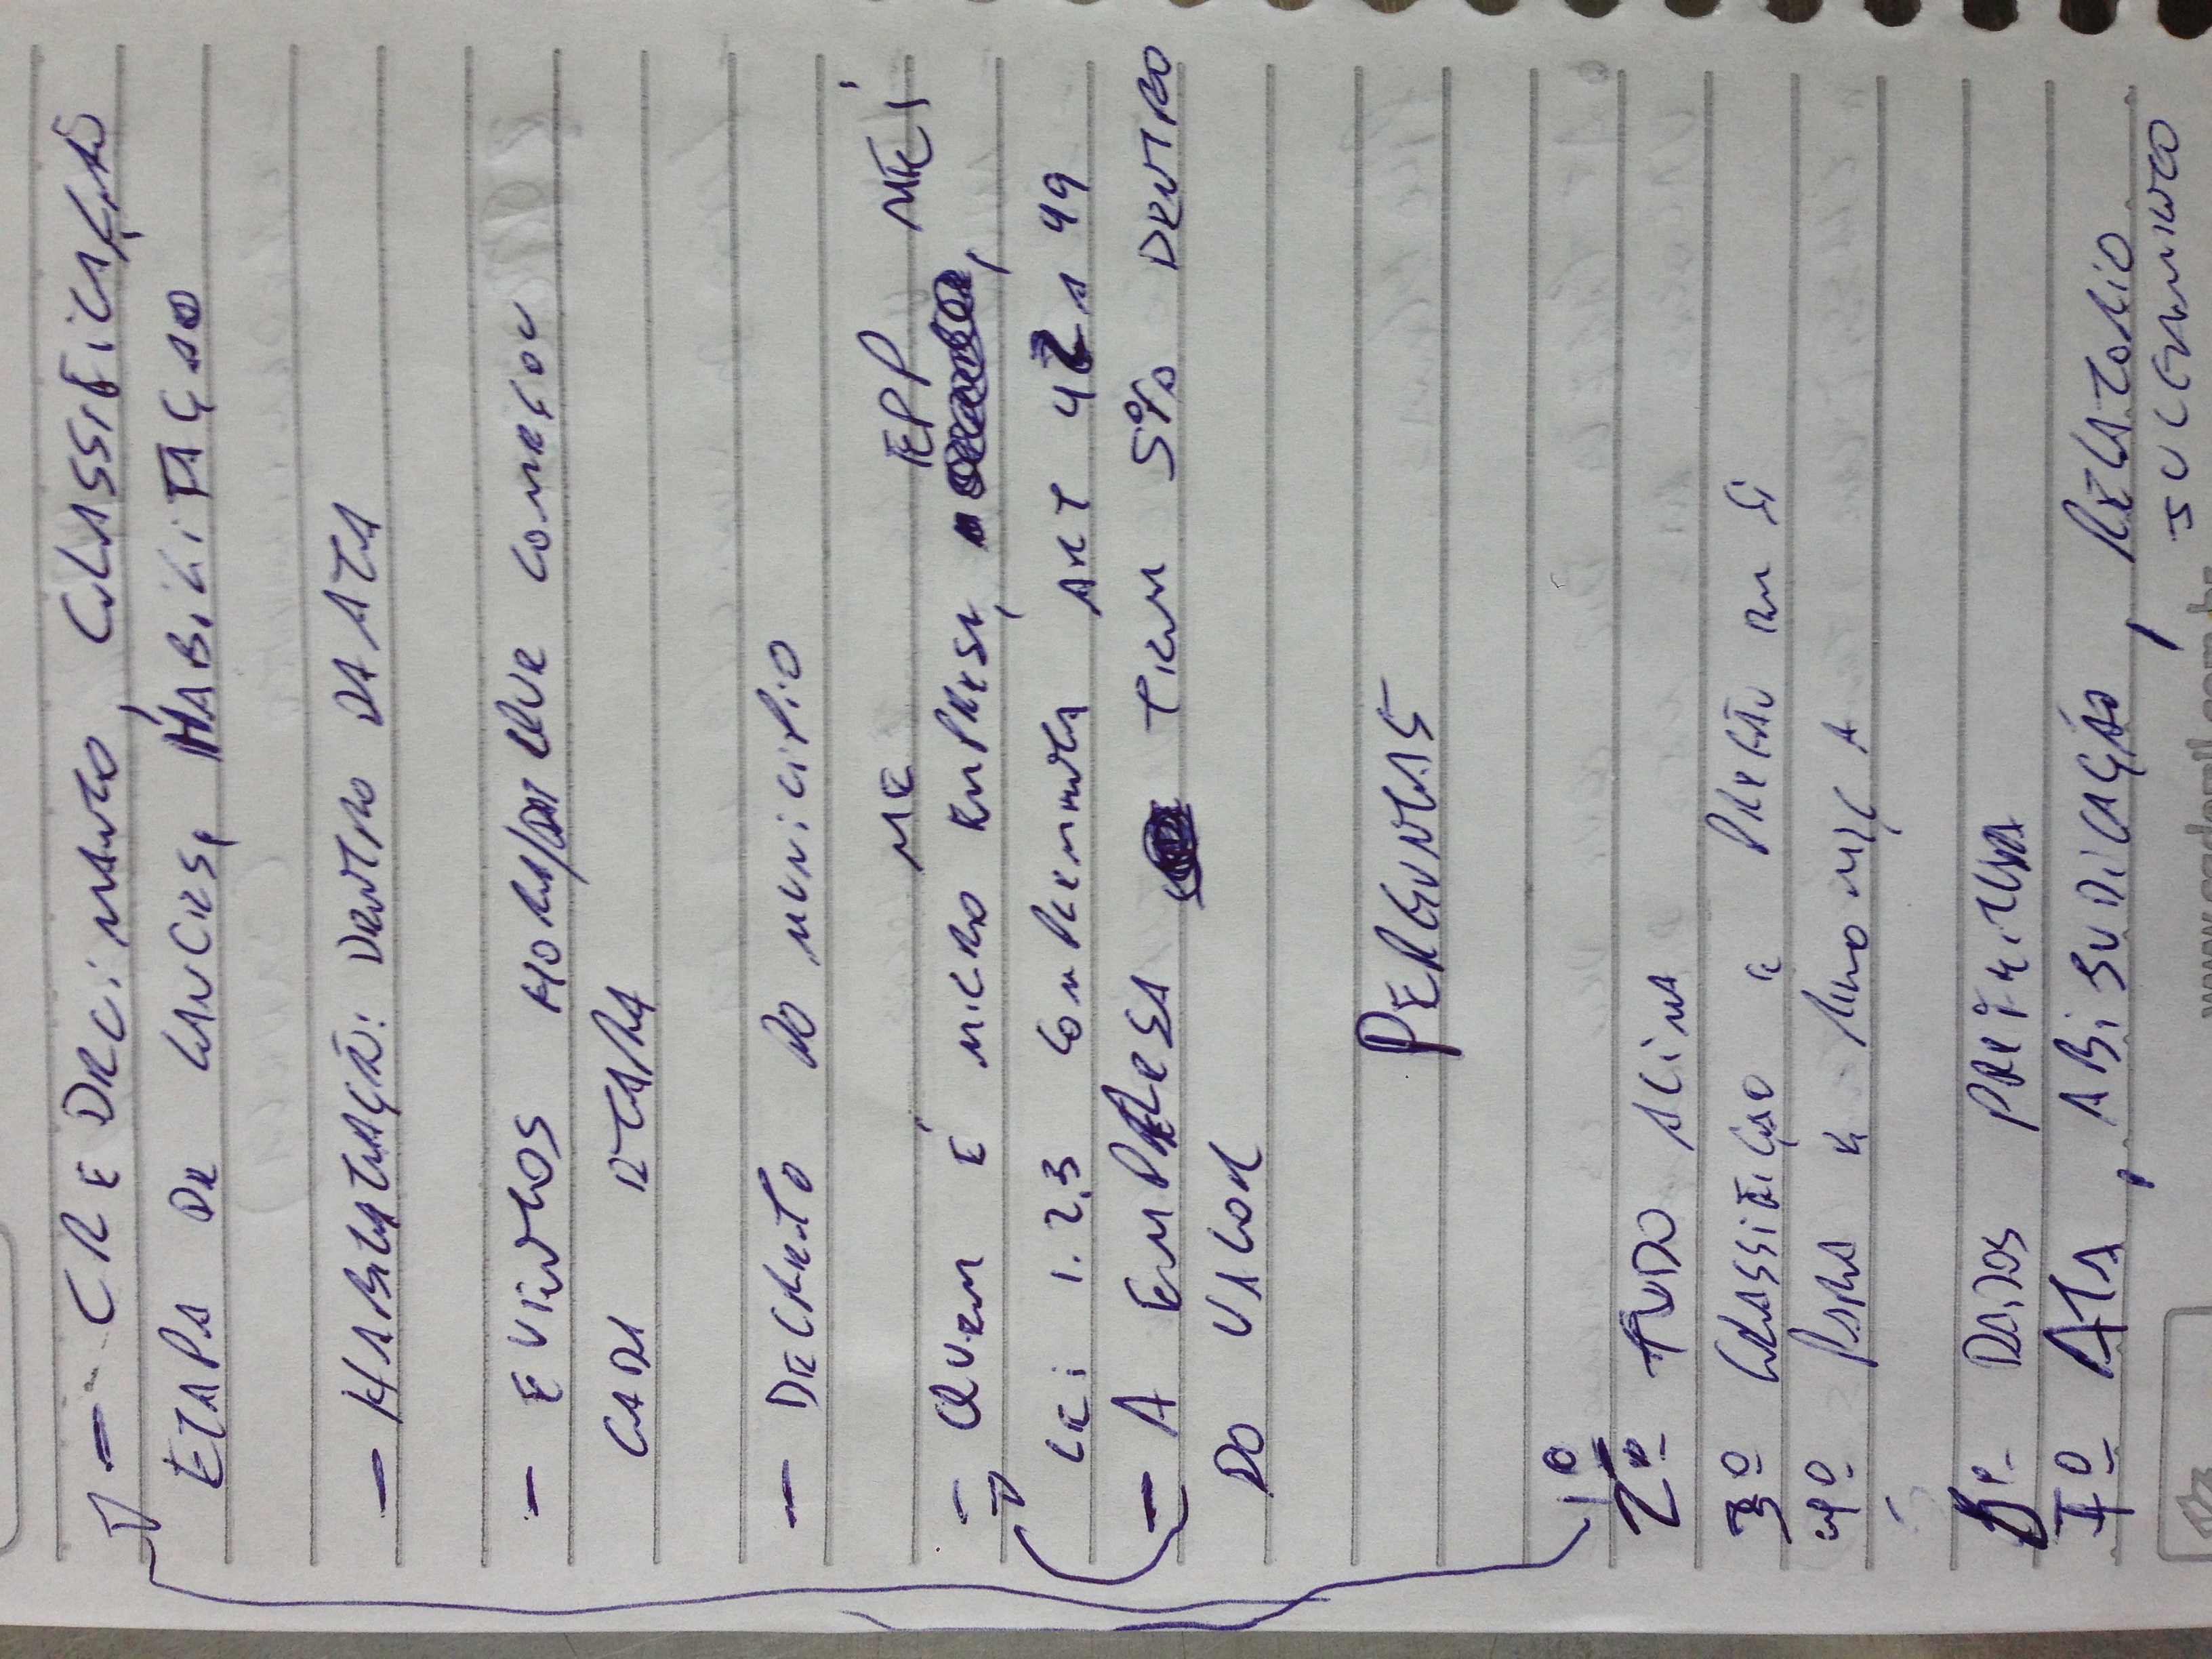 - CREDECIMANTO, CLASSIFICAÇÃO
ETAPA DE LANCES, HABILITAÇAO
- HABILATAÇÃO: DENTRO DA ATA
- EVENTOS HORA/ QUE COMEÇOU
CADA ETAPA
- DECRETO DO MUNICIPIO
ME EPP MEI
- QUEM É MICRO EMPRESA, ,
LEI 1.2.3 COMPLEMENTA ART 42 A 49
- A EMPRESA TEM 5% DENTRO
DO VALOR
PERGUNTAS
1º
2º TUDO ACIMA
3º CLASSIFIÇAO E PREGÃO EM SI
4º PARA E
5
6º DADOS PREFEITURA
7º ATA, ABISUDICAÇÃO, RELATORIO